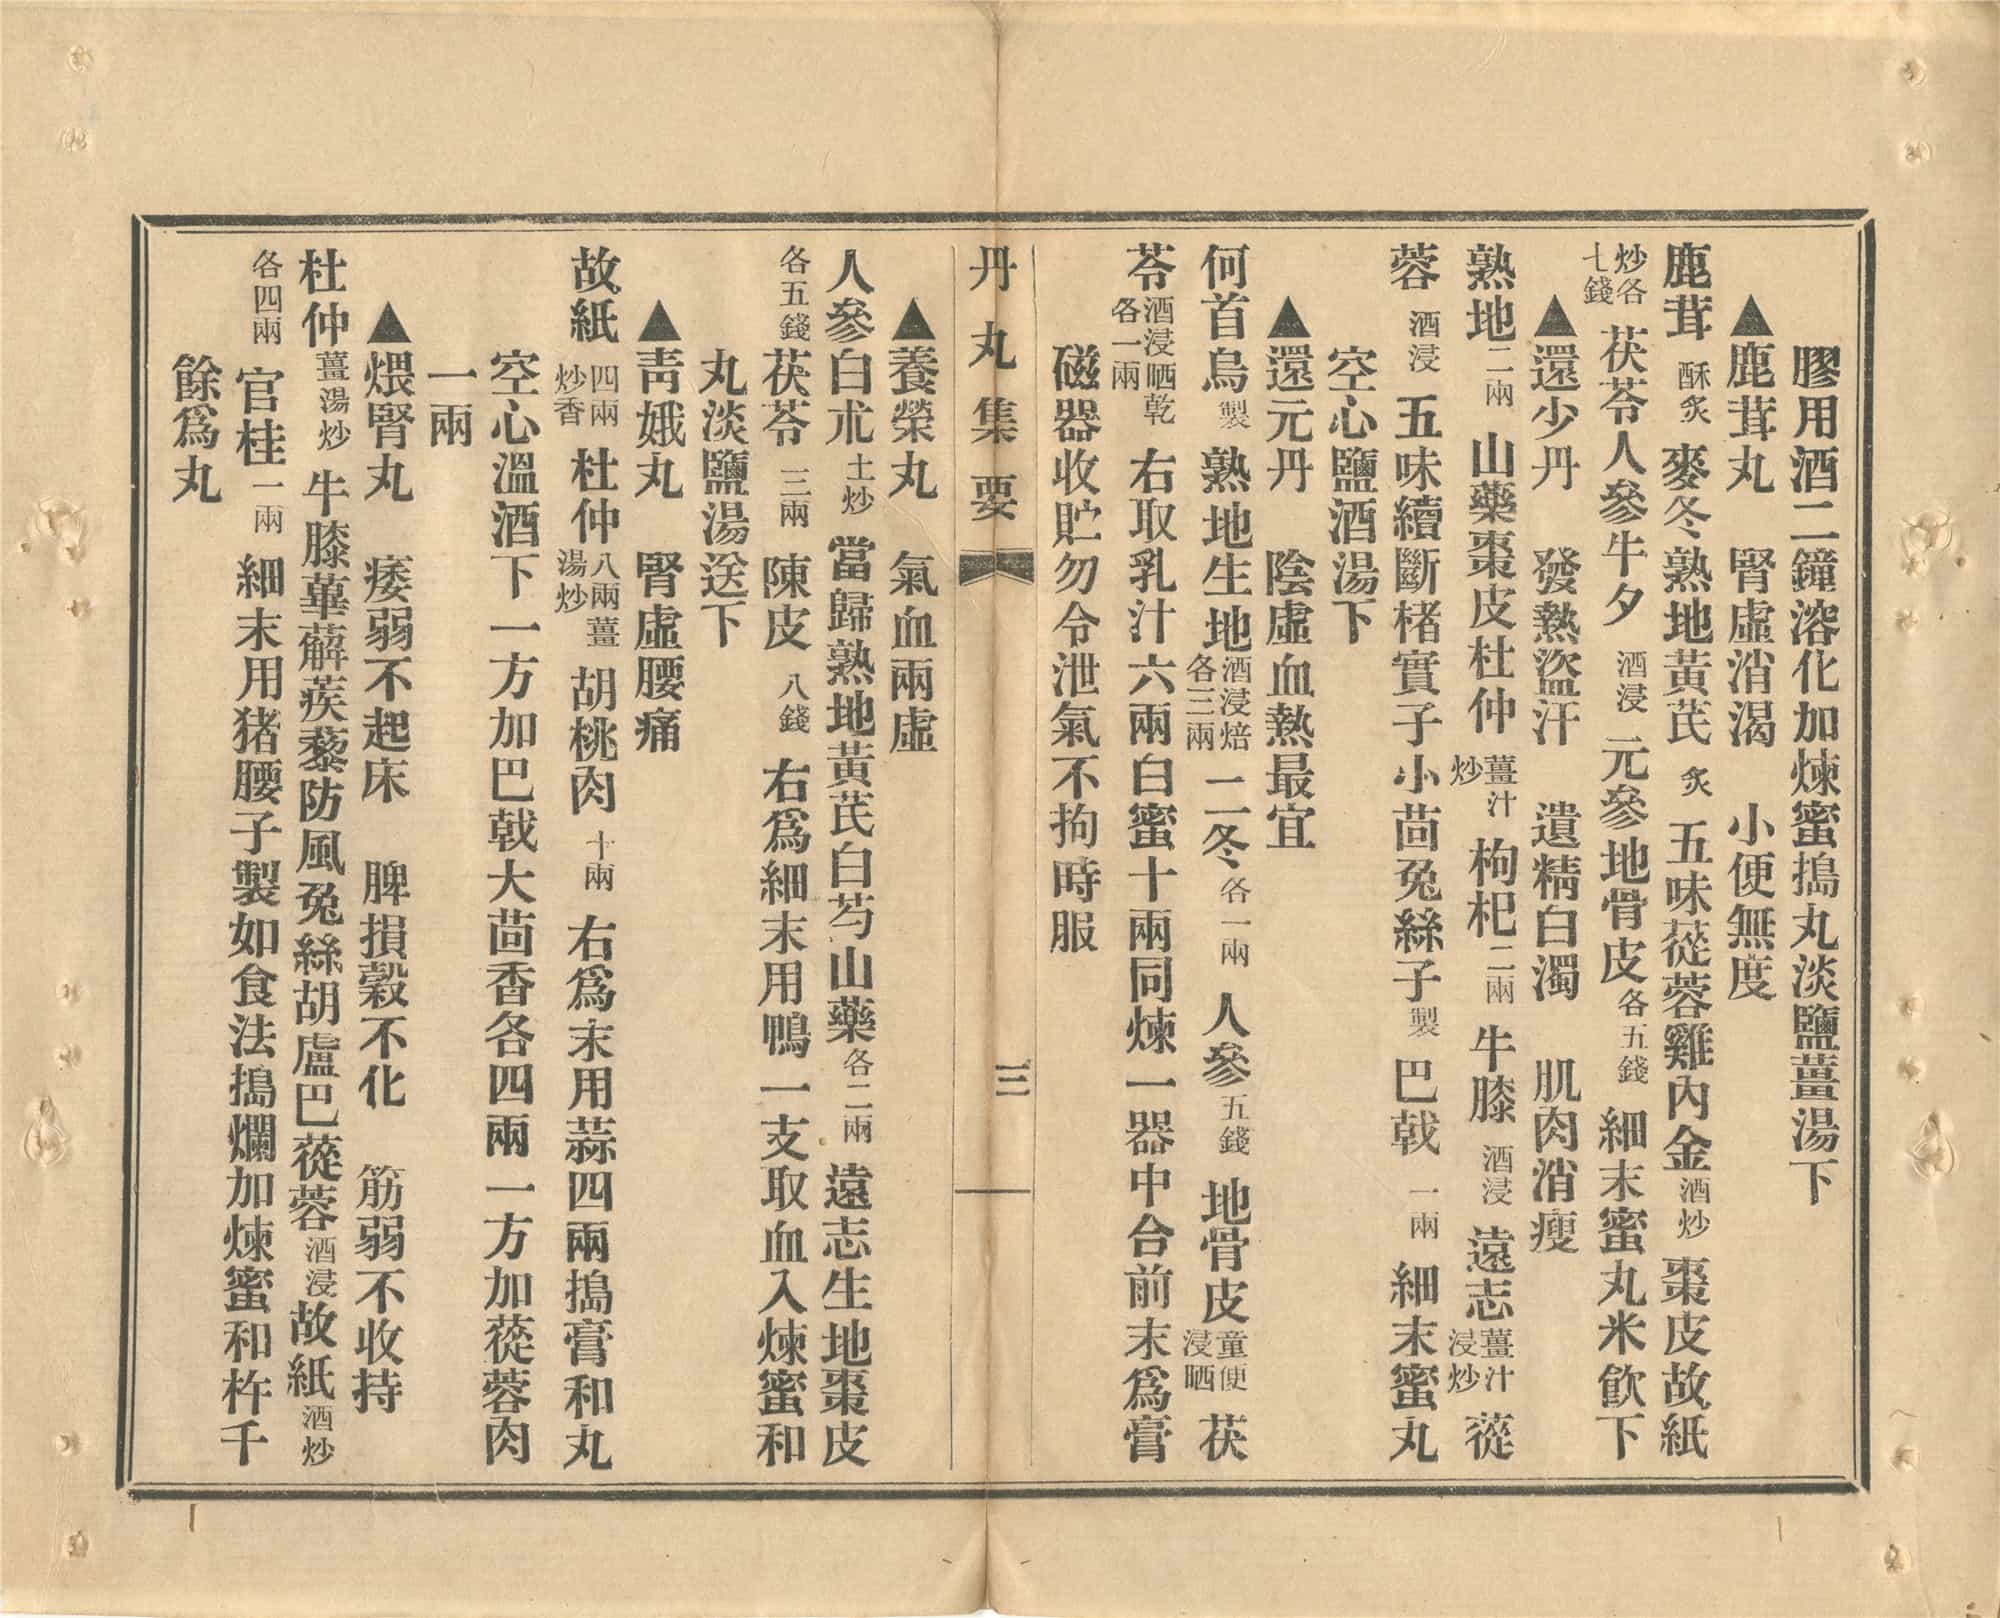 膠用酒二鐘溶化加煉蜜搗丸淡鹽薑湯下
▲鹿茸丸　腎虛消渴　小便無度
鹿茸酥炙麥冬熟地黃芪炙五味蓯蓉雞內金酒炒棗皮故紙
炒各七錢茯苓人參牛夕酒浸元參地骨皮各五錢細末蜜丸米飲下
▲還少丹　發熱盜汗　遺精白濁　肌肉消瘦
熟地二兩山藥棗皮杜仲薑汁炒枸杞二兩牛膝酒浸遠志薑汁浸炒蓯
蓉酒浸五味續斷楮實子小茴兔絲子製巴戟一兩細末蜜丸
空心鹽酒湯下
▲還元丹　陰虛血熱最宜
何首烏製熟地生地酒浸焙各三兩二冬各一兩人參五錢地骨皮童便浸晒茯
苓酒浸晒乾各一兩右取乳汁六兩白蜜十兩同煉一器中台前末為膏
磁器收貯勿令泄氣不拘時服
丹丸集要　三
▲養榮丸　氣血兩虛
人參白朮土炒當歸熟地黃芪白芍山藥各二兩遠志生地棗皮
各五錢茯苓三兩陳皮八錢右為細末用鴨一支取血入煉蜜和
丸淡鹽湯送下
▲靑娥丸　腎虛腰痛
故紙四兩炒香杜仲八兩薑湯炒胡桃肉十兩右為末用蒜四兩搗膏和丸
空心溫酒下一方加巴戟大茴香各四兩一方加蓯蓉肉
一兩
▲煨腎丸　痿弱不起床　脾損穀不化　筋弱不收持
杜仲薑湯炒牛膝萆薢蒺藜防風兔絲胡盧巴蓯蓉酒浸故紙酒炒
各四兩官桂一兩細末用猪腰子製如食法搗爛加煉蜜和杵千
餘為丸